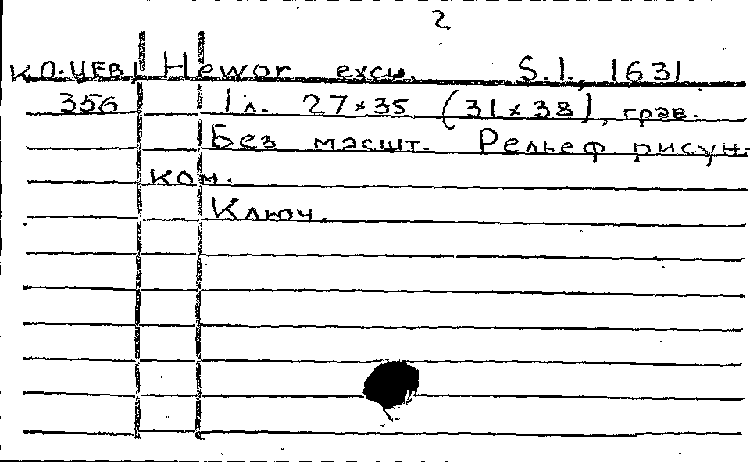 2
К.О.ЦЕВ. Hewor excu. S.l., 1631
356 1 л. 27×35 (31×38), грав.
Без масшт. Рельеф рисун-
ком.
Ключ.